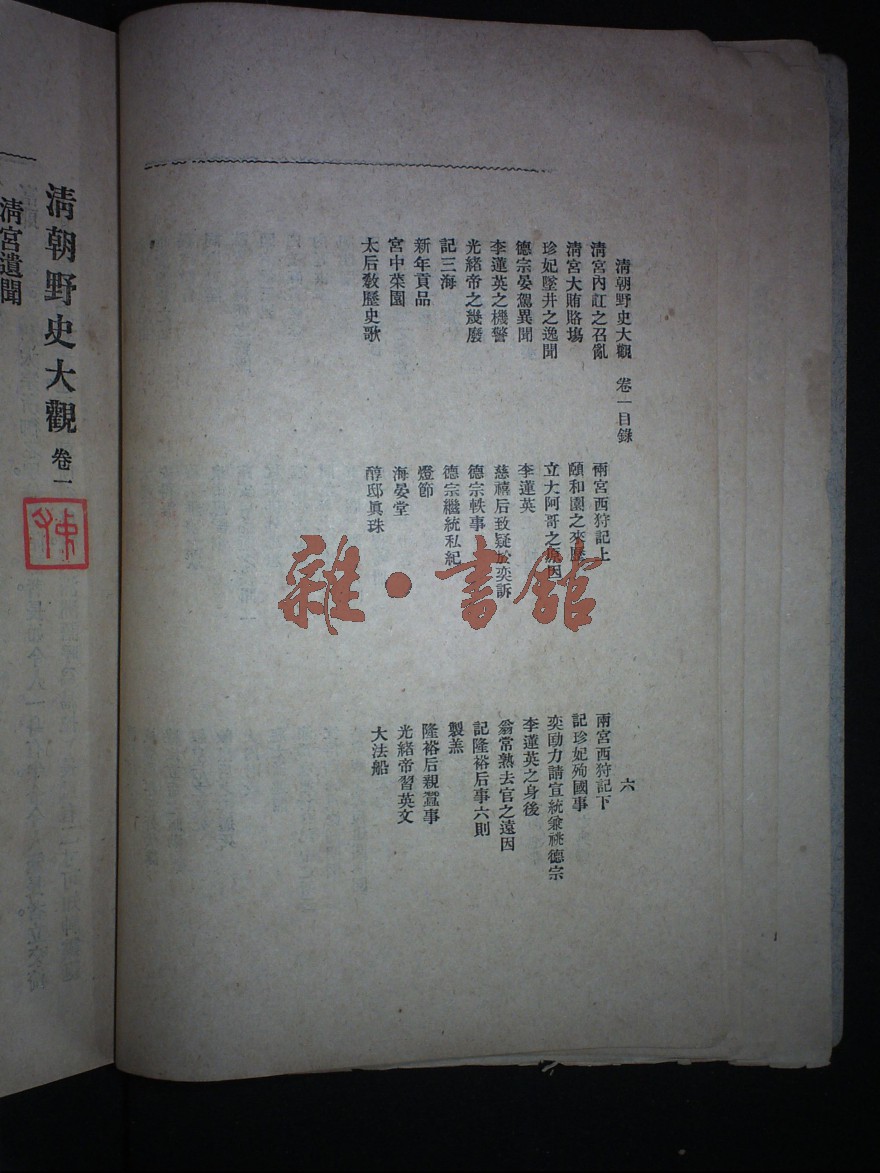 清朝野史大觀 卷一目錄 六
清宮內訌之召亂 兩宮西狩記上 兩宮西狩記下
清宮大賄賂塲 頤和園之來歷 記珍妃殉國事
珍妃墜井之逸聞 立大阿哥之原因 奕劻力請宣統兼祧德宗
德宗晏駕異聞 李蓮英 李蓮英之身後
李蓮英之機警 慈禧后致疑於奕訢 翁常熟去官之遠因
光緒帝之幾廢 德宗軼事 記隆裕后事六則
記三海 德宗繼統私紀 製羔
新年貢品 燈節 隆裕后親蠶事
宮中菜園 海晏堂 光緒帝習英文
太后敎歷史歌 醇邸眞珠 大法船
清朝野史大觀 卷一
清宮遺聞
雜·書館